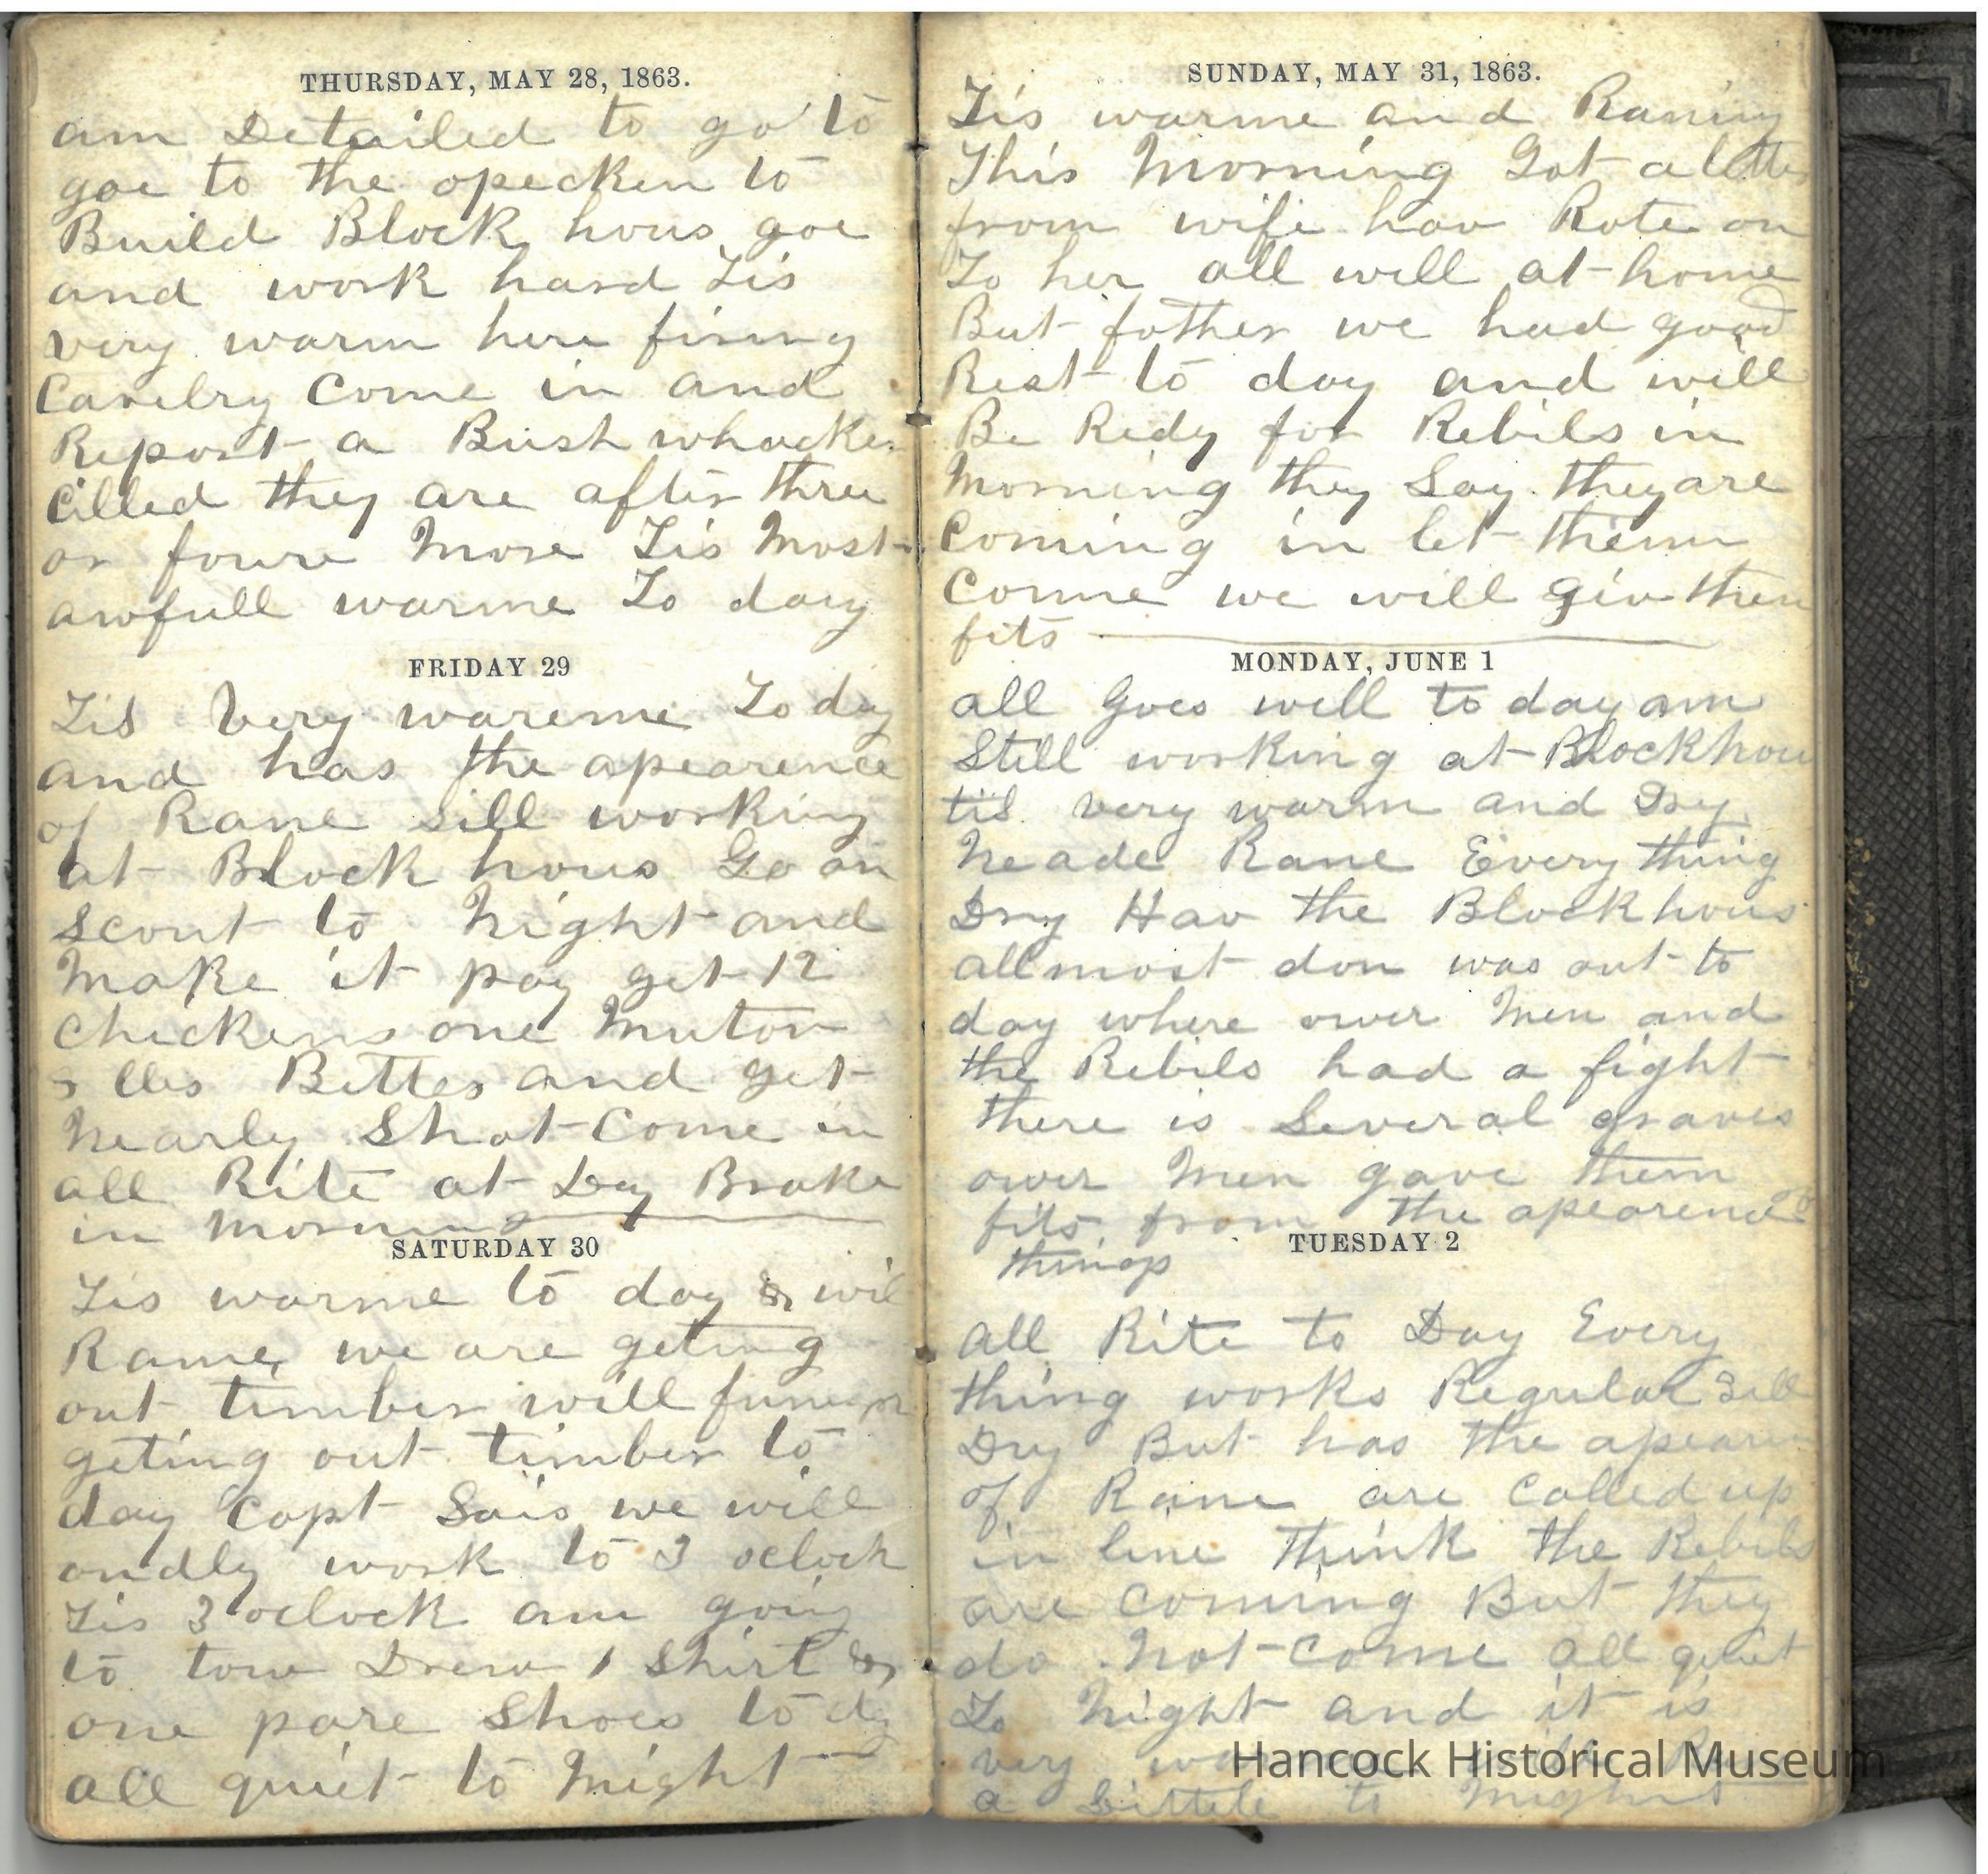 THURSDAY, MAY 28, 1863.
am Detailed to go to
goe to the opecken to
Build Block hous goe
and work hard Tis
very warm here firing
Cavelry Come in and
Report a Bush whacker
Cilled they are after three
or foure More Tis Most
awfull warme To day
FRIDAY 29
Tis Very wareme To day
and has the apearence
of Rane sill working
at Block hous Go on
Scout to Night and
Make it pay get 12
Chickens one Muton
lbs Better and get
Nearly Shot Come in
all Rite at Day Brake
in Morning
SATURDAY 30
Tis warme to day & wil
Rane, we are geting
out timber will
geting out timber to
day Capt Sais we will
ondly work to 3 oclock
Tis 3 oclock am going
to tow Drew 1 Shirt &
one pare Shoes to dy
all quiet to Night
SUNDAY, MAY 31, 1863.
Tis warme and Raning
This Morning Got a letter
from wife hav Rote on
To her all will at home
But father we had good
Rest to day and will
Be Redy for Rebils in
Morning they Say they are
Coming in let them
Come we will giv them
fits
MONDAY, JUNE 1
all Goes well to day am
Still working at Blockhou
tis very warm and Dry
Neade Rane Every thing
Dry Hav the Block hous
allmost don was out to
day where ower Men and
the Rebils had a fight
there is Several graves
ower Men gave them
fits from the apearence of
things
TUESDAY 2
all Rite to Day Every
thing works Regular Sill
Dry But has the apearin
of Rane are Called up
in line Think the Rebils
are Coming But they
do Not Come all quiet
To Night and it is
very
a Little to Night
Hancock Historical Museum